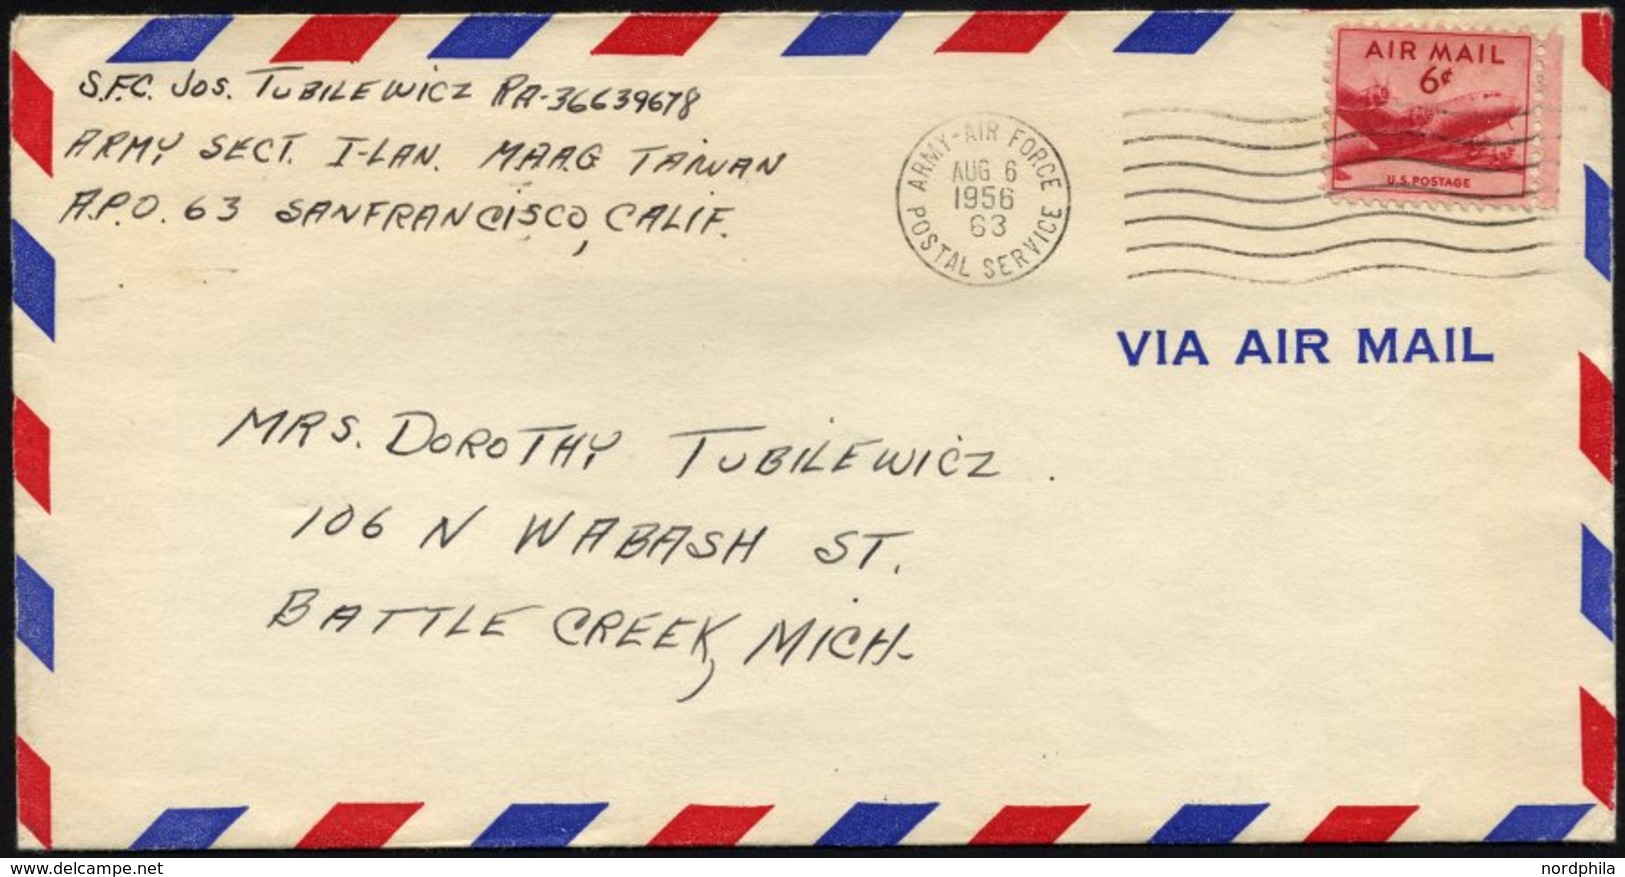 S.F.C. JOS. TUBILEWICZ RA-36639678
ARMY SECT. I-LAN. MAAG TAIWAN
A.P.O. 63 SANFRANCISCO, CALIF.
ARMY-AIR FORCE
AUG 6
1956
63
POSTAL SERVICE
AIR MAIL
6¢
U.S. POSTAGE
VIA AIR MAIL
MRS. DOROTHY TUBILEWICZ.
106 N WABASH ST.
BATTLE CREEK, MICH.
www.delcampe.net
nordphila